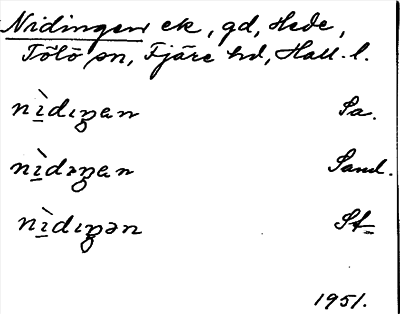 Nidingen ek, gd, Hede,
Tölö sn, Fjäre hd, Hall. l.
nìdıŋan Sa.
nìdıŋan Sand.
nìdıŋən St=
1951.